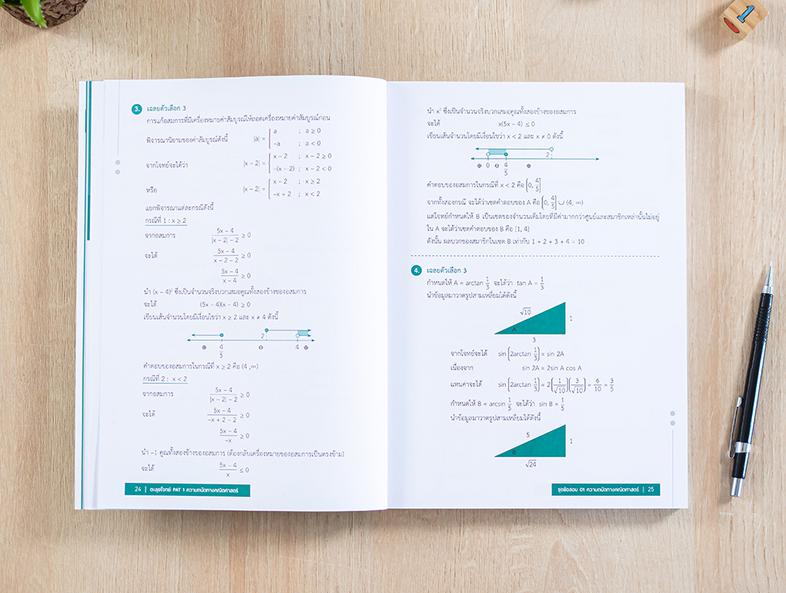 3. เฉลยตัวเลือก 3
การแก้อสมการที่มีเครื่องหมายค่าสัมบูรณ์ให้ถอดเครื่องหมายค่าสัมบูรณ์ก่อน
พิจารณานิยามของค่าสัมบูรณ์ดังนี้ |a| = { a ; a ≥ 0
-a ; a < 0
จากโจทย์จะได้ว่า |x - 2| = { x - 2 ; x - 2 ≥ 0
-(x - 2) ; x - 2 < 0
หรือ |x - 2| = { x - 2 ; x ≥ 2
-x + 2 ; x < 2
แยกพิจารณาแต่ละกรณีดังนี้
กรณีที่ 1 : x ≥ 2
จากอสมการ (5x - 4)/(|x - 2| - 2) ≥ 0
จะได้ (5x - 4)/(x - 2 - 2) ≥ 0
(5x - 4)/(x - 4) ≥ 0
นำ (x - 4)² ซึ่งเป็นจำนวนจริงบวกเสมอคูณทั้งสองข้างของอสมการ
จะได้ (5x - 4)(x - 4) ≥ 0
เขียนเส้นจำนวนโดยมีเงื่อนไขว่า x ≥ 2 และ x ≠ 4 ดังนี้
4/5 2 4
คำตอบของอสมการในกรณีที่ x ≥ 2 คือ (4, ∞)
กรณีที่ 2 : x < 2
จากอสมการ (5x - 4)/(|x - 2| - 2) ≥ 0
จะได้ (5x - 4)/(-x + 2 - 2) ≥ 0
(5x - 4)/(-x) ≥ 0
นำ -1 คูณทั้งสองข้างของอสมการ (ต้องกลับเครื่องหมายของอสมการเป็นตรงข้าม)
จะได้ (5x - 4)/x ≤ 0
24 | ตะลุยโจทย์ PAT 1 ความถนัดทางคณิตศาสตร์
นำ x² ซึ่งเป็นจำนวนจริงบวกเสมอคูณทั้งสองข้างของอสมการ
จะได้ x(5x - 4) ≤ 0
เขียนเส้นจำนวนโดยมีเงื่อนไขว่า x < 2 และ x ≠ 0 ดังนี้
0 4/5 2
คำตอบของอสมการในกรณีที่ x < 2 คือ (0, 4/5]
จากทั้งสองกรณี จะได้ว่าเซตคำตอบของ A คือ (0, 4/5] ∪ (4, ∞)
แต่โจทย์กำหนดให้ B เป็นเซตของจำนวนเต็มโดยที่มีค่ามากกว่าศูนย์และสมาชิกเหล่านั้นไม่อยู่
ใน A จะได้ว่าเซตคำตอบของ B คือ [1, 4]
ดังนั้น ผลบวกของสมาชิกในเซต B เท่ากับ 1 + 2 + 3 + 4 = 10
4. เฉลยตัวเลือก 3
กำหนดให้ A = arctan 1/3 จะได้ว่า tan A = 1/3
นำข้อมูลมาวาดรูปสามเหลี่ยมได้ดังนี้
√10 1
A
3
จากโจทย์จะได้ sin(2arctan 1/3) = sin 2A
เนื่องจาก sin 2A = 2sin A cos A
แทนค่าจะได้ sin(2arctan 1/3) = 2(1/√10)(3/√10) = 6/10 = 3/5
กำหนดให้ B = arcsin 1/5 จะได้ว่า sin B = 1/5
นำข้อมูลมาวาดรูปสามเหลี่ยมได้ดังนี้
5 1
B
√24
ชุดข้อสอบ 01 ความถนัดทางคณิตศาสตร์ | 25